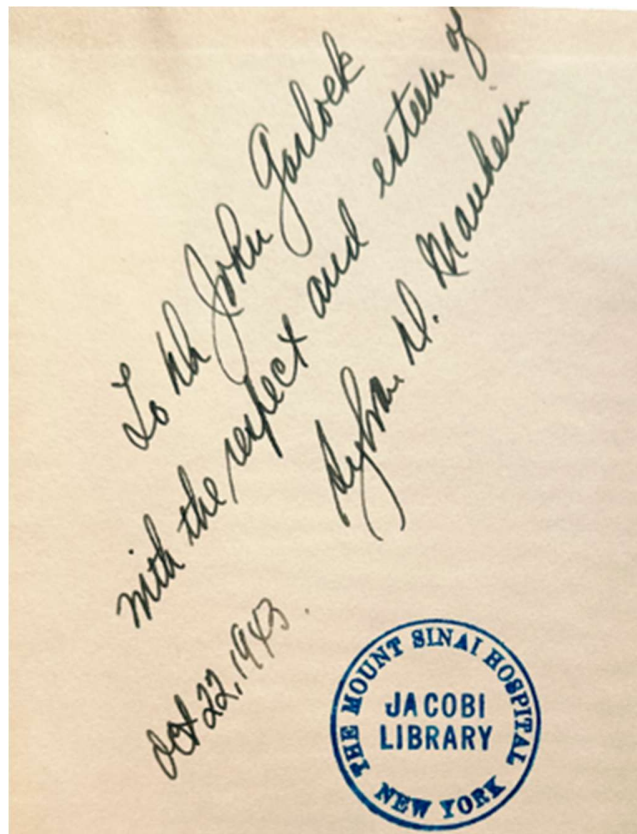 To Dr John Garlock
with the respect and esteem of
Sylvan D. Manheim
Oct 22, 1943.
THE MOUNT SINAI HOSPITAL
JACOBI
LIBRARY
NEW YORK